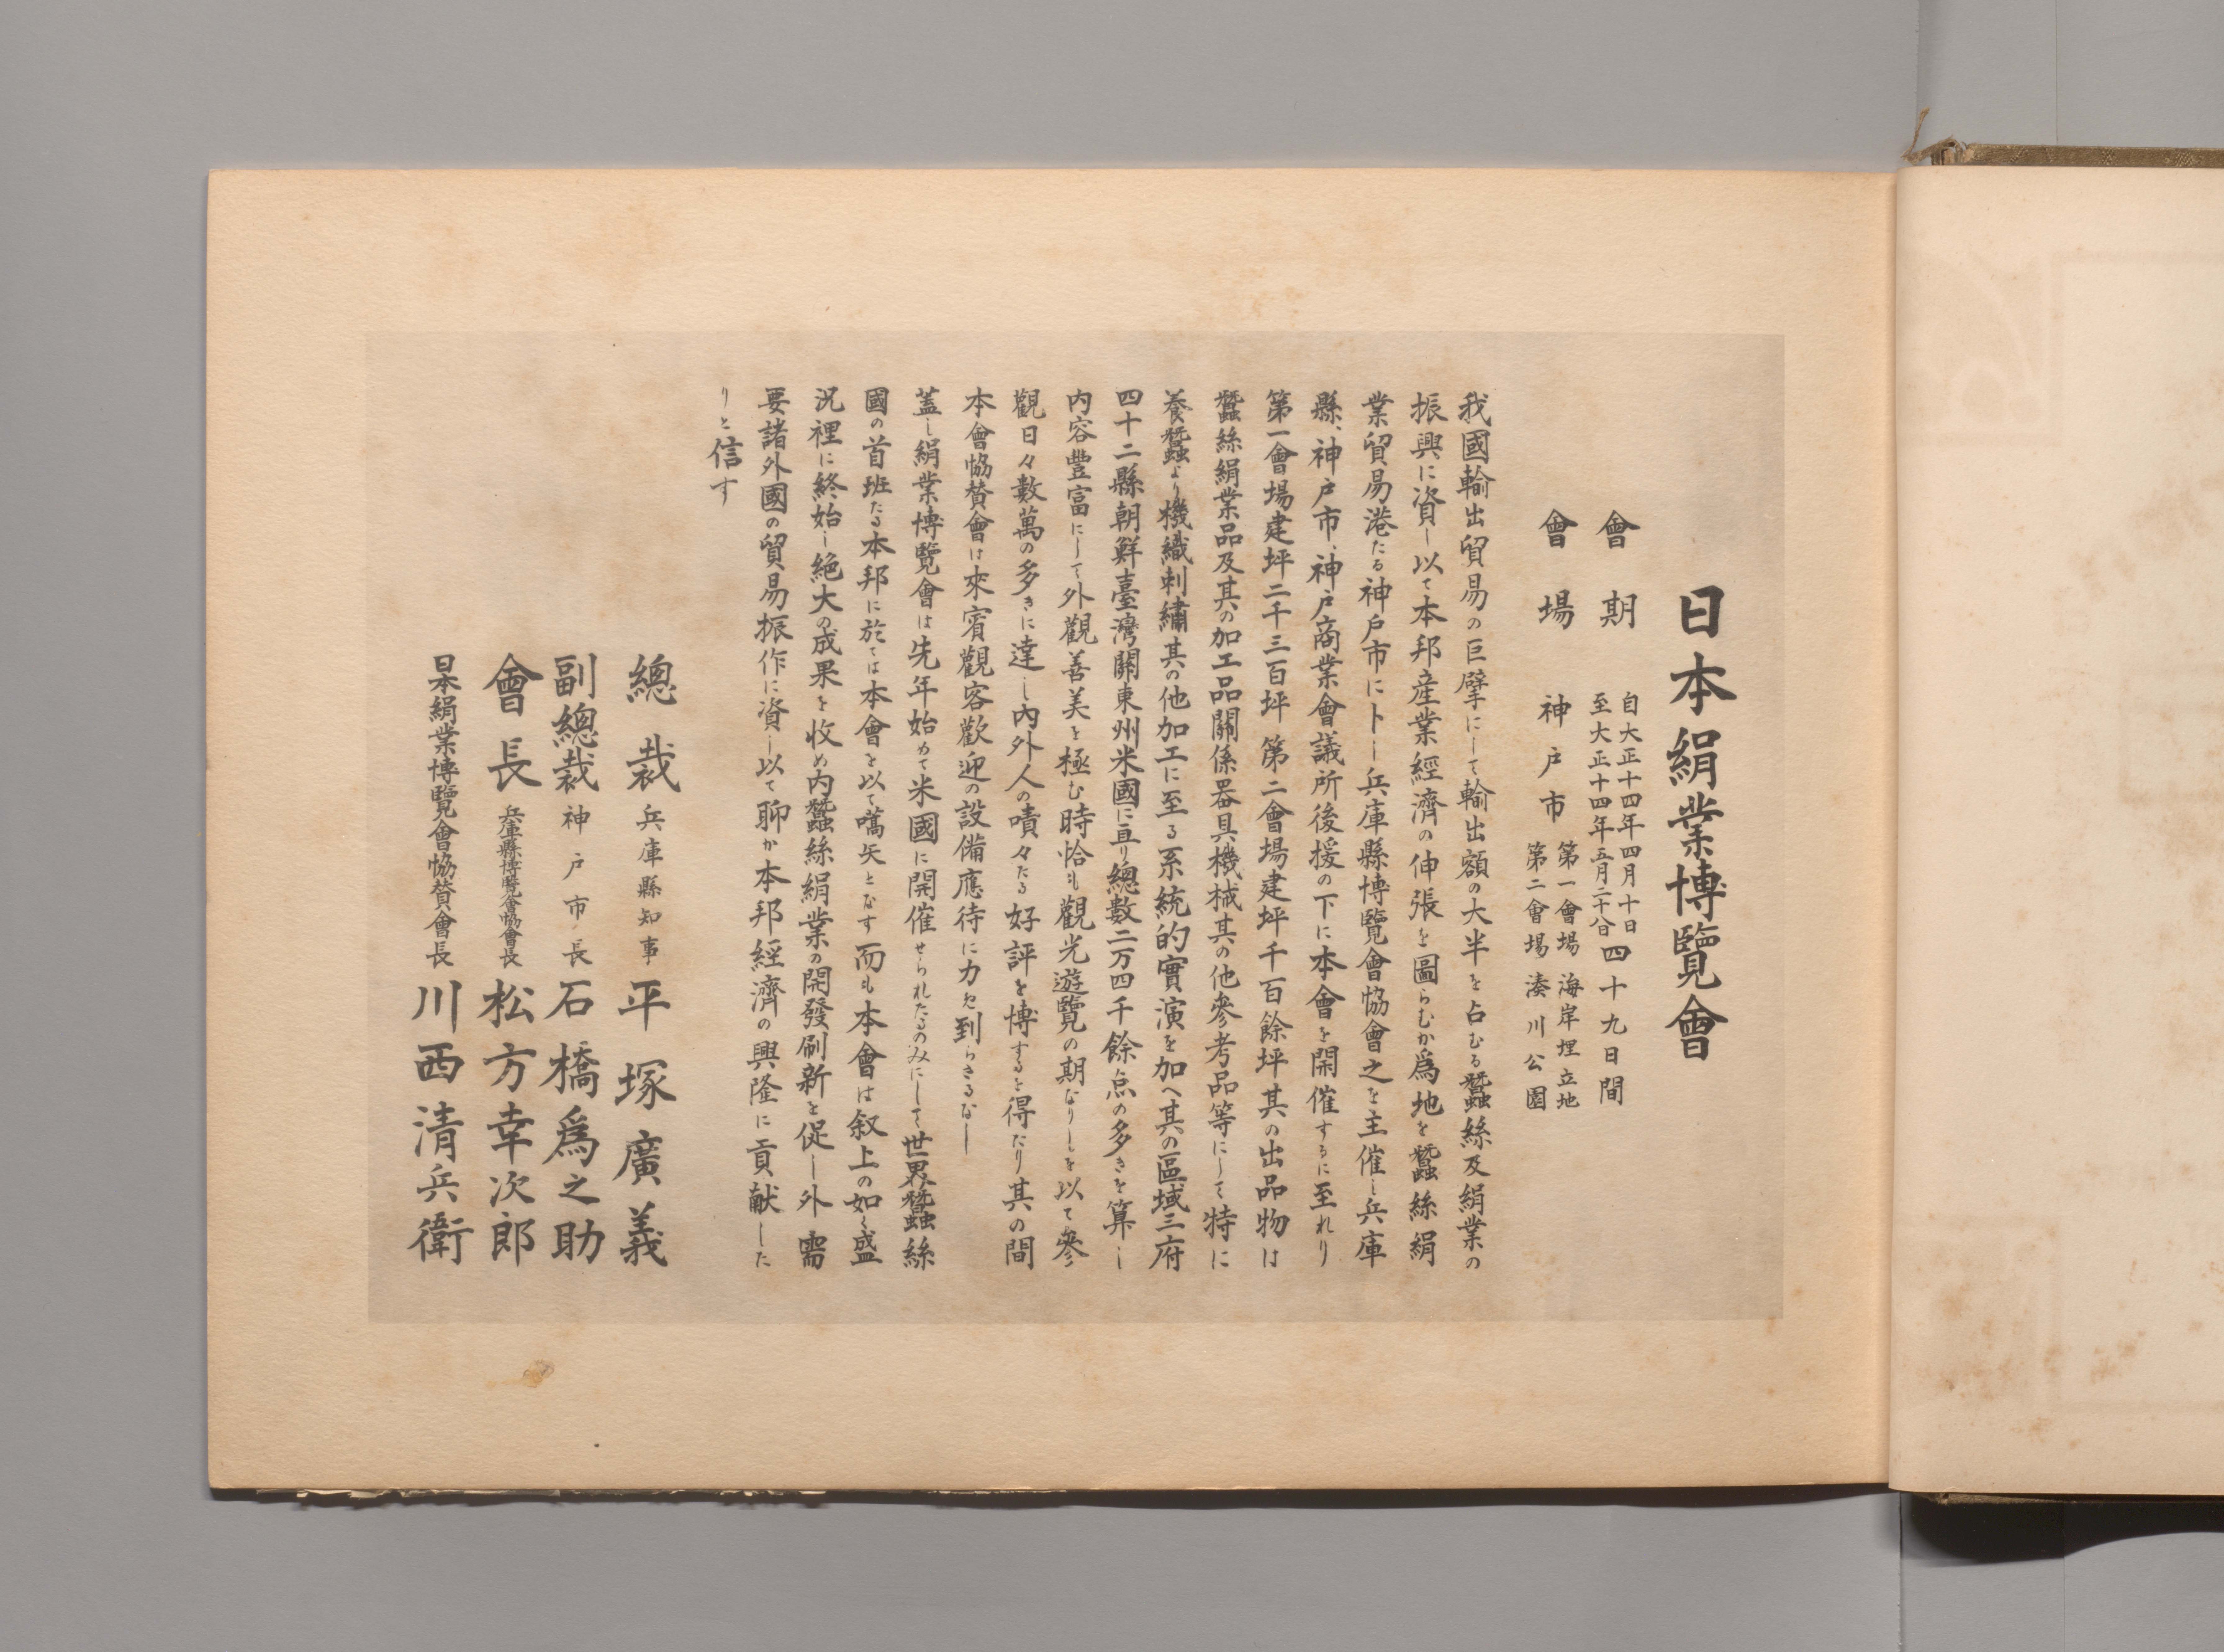 日本絹業博覽會
會期 自大正十四年四月十日 至大正十四年五月二十八日 四十九日間
會場 神戸市 第一會場 海岸埋立地 第二會場 湊川公園
我國輸出貿易の巨擘にして輸出額の大半を占むる蠶絲及絹業の
振興に資し以て本邦産業經濟の伸張を圖らむか爲地を蠶絲絹
業貿易港たる神戸市に卜し兵庫縣博覽會協會之を主催し兵庫
縣、神戸市、神戸商業會議所後援の下に本會を開催するに至れり
第一會場建坪二千三百坪 第二會場建坪千百餘坪其の出品物は
蠶絲絹業品及其の加工品關係器具機械其の他參考品等にして特に
養蠶より機織刺繍其の他加工に至る系統的實演を加へ其の區域三府
四十二縣朝鮮臺灣關東州米國に亘り總數二万四千餘点の多きを算し
内容豐富にして外觀善美を極む時恰も觀光遊覽の期なりしを以て參
觀日々數萬の多きに達し内外人の嘖々たる好評を博するを得たり其の間
本會協賛會は來賓觀客歡迎の設備應待に力め到らさるなし
蓋し絹業博覽會は先年始めて米國に開催せられたるのみにして世界蠶絲
國の首班たる本邦に於ては本會を以て嚆矢となす而も本會は叙上の如く盛
況裡に終始し絶大の成果を收め内蠶絲絹業の開發刷新を促し外需
要諸外國の貿易振作に資し以て聊か本邦經濟の興隆に貢献した
りと信す
總裁 兵庫縣知事 平塚廣義
副總裁 神戸市長 石橋爲之助
會長 兵庫縣博覽會協會長 松方幸次郎
日本絹業博覽會協賛會長 川西清兵衛